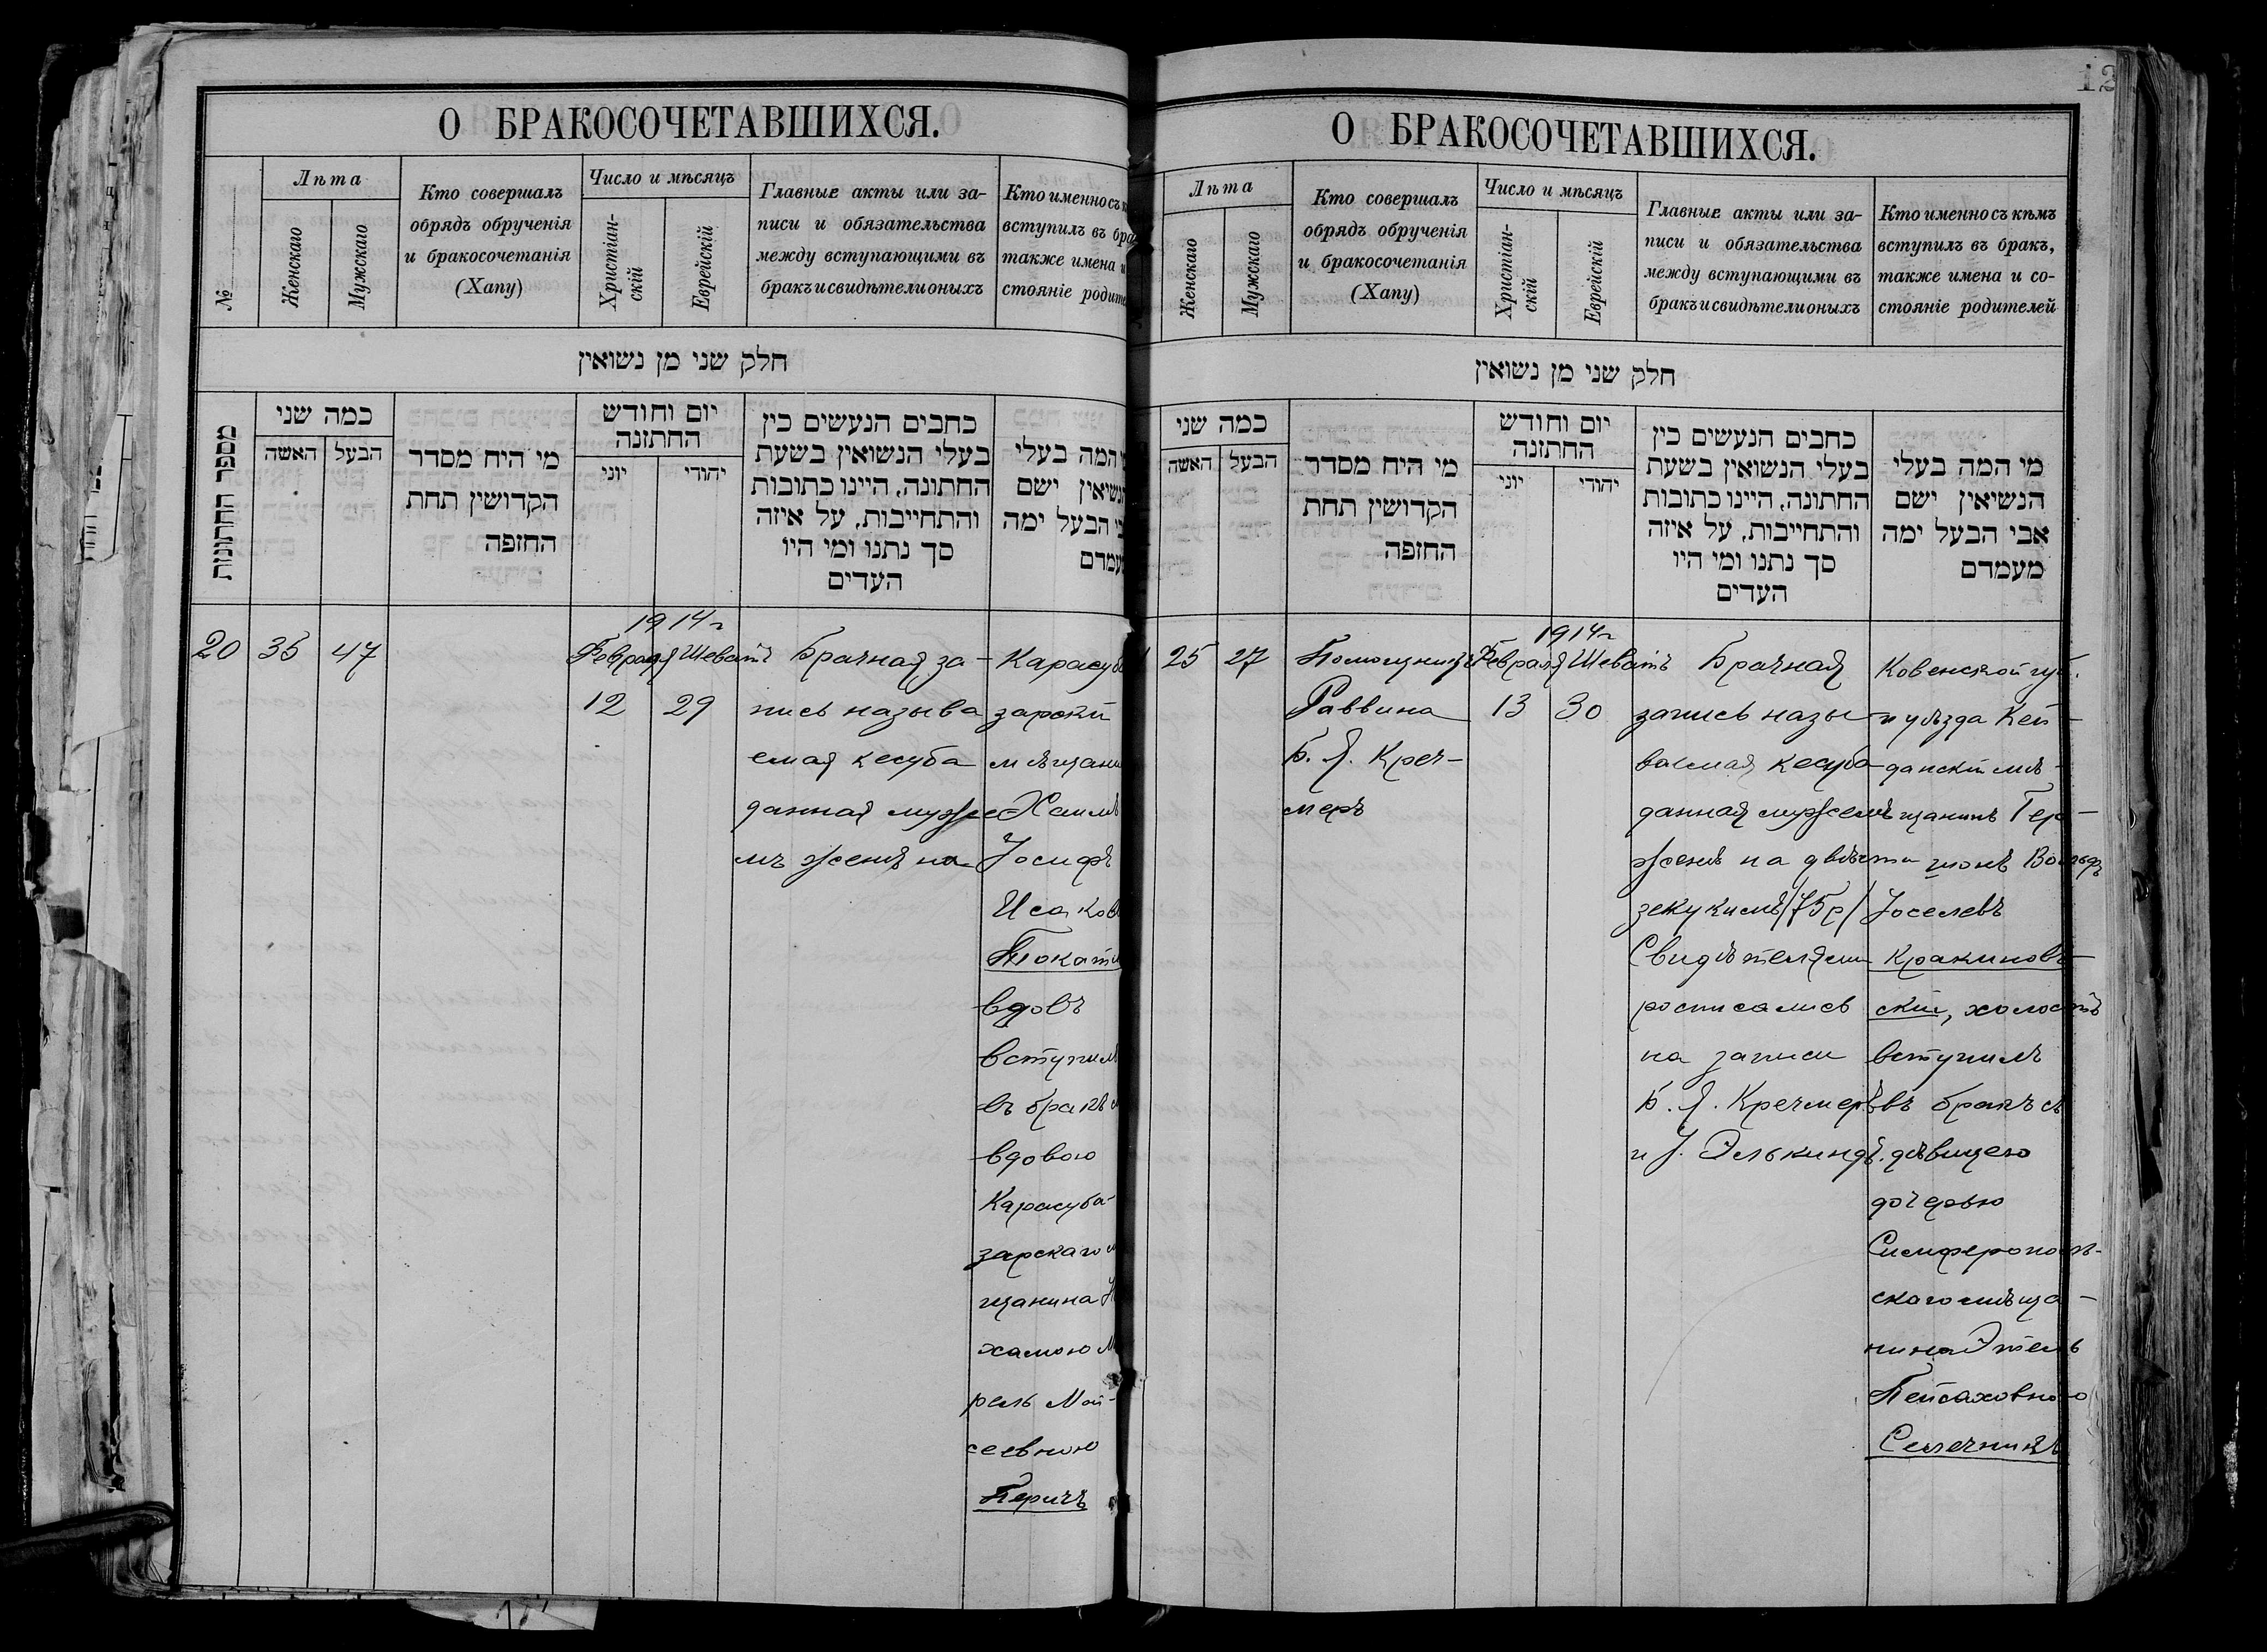 12
О БРАКОСОЧЕТАВШИХСЯ.
№
Лѣта
Женскаго
Мужскаго
Кто совершалъ
обрядъ обрученія
и бракосочетанія
(Хапу)
Число и мѣсяцъ
Христіан-
скій
Еврейскій
Главные акты или за-
писи и обязательства
между вступающими въ
бракъ и свидѣтели оныхъ
Кто именно съ
вступилъ въ
также имена
стояніе
חלק שני מן נשואין
מספר החתונות
כמה שני
האשה
הבעל
מי היח מסדר
הקדושין תחת
החזפה
יום וחודש
החתזנה
יוני
יהודי
כחבים הנעשים כין
בעלי הנשואין בשעת
החתונה, היינו כתובות
והתחייבות, על איזה
סך נתנו ומי היו
העדים
המה בעלי
ישם
הבעל ימה
20
35
47
1914 г
Февраля Шеватъ
12
29
Брачная за-
пись называ
емая кесуба
данная муже
мъ женѣ на
зарскій
Хаимъ
Іосифъ
вдовъ
вступилъ
въ бракъ
вдовою
Карасуба-
зарскаго
щанина
рель Мои-
сеевною
Перичъ
О БРАКОСОЧЕТАВШИХСЯ.
Лѣта
Женскаго
Мужскаго
Кто совершалъ
обрядъ обрученія
и бракосочетанія
(Хапу)
Число и мѣсяцъ
Христіан-
скій
Еврейскій
Главные акты или за-
писи и обязательства
между вступающими въ
бракъ и свидѣтели оныхъ
Кто именно съ кѣмъ
вступилъ въ бракъ,
также имена и со-
стояніе родителей
חלק שני מן נשואין
כמה שני
האשה
הבעל
מי היח מסדר
הקדושין תחת
החזפה
יום וחודש
החתזנה
יוני
יהודי
כחבים הנעשים כין
בעלי הנשואין בשעת
החתונה, היינו כתובות
והתחייבות, על איזה
סך נתנו ומי היו
העדים
מי המה בעלי
הנשיאין ישם
אבי הבעל ימה
מעמדם
25
27
Помощникъ
Раввина
Б. Я. Креч-
меръ
1914 г
Февраля Шеватъ
13
30
Брачная
запись назы
ваемая кесуба
данная мужемъ
женѣ на двѣсти
зекукимъ /75 р/
Свидѣтелями
росписались
на записи
Б. Я. Кречмеръ
и І. Элькиндъ.
Ковенской губ.
и уѣзда Кей-
данскій мѣ-
щанинъ Гер-
шонъ Вольфъ
Іоселевъ
Кракиновъ-
скій, холостъ
вступилъ
въ бракъ съ
дѣвицею
дочерью
Симферополь-
скаго мѣща-
нина Этель
Пейсаховною
Сплечникъ